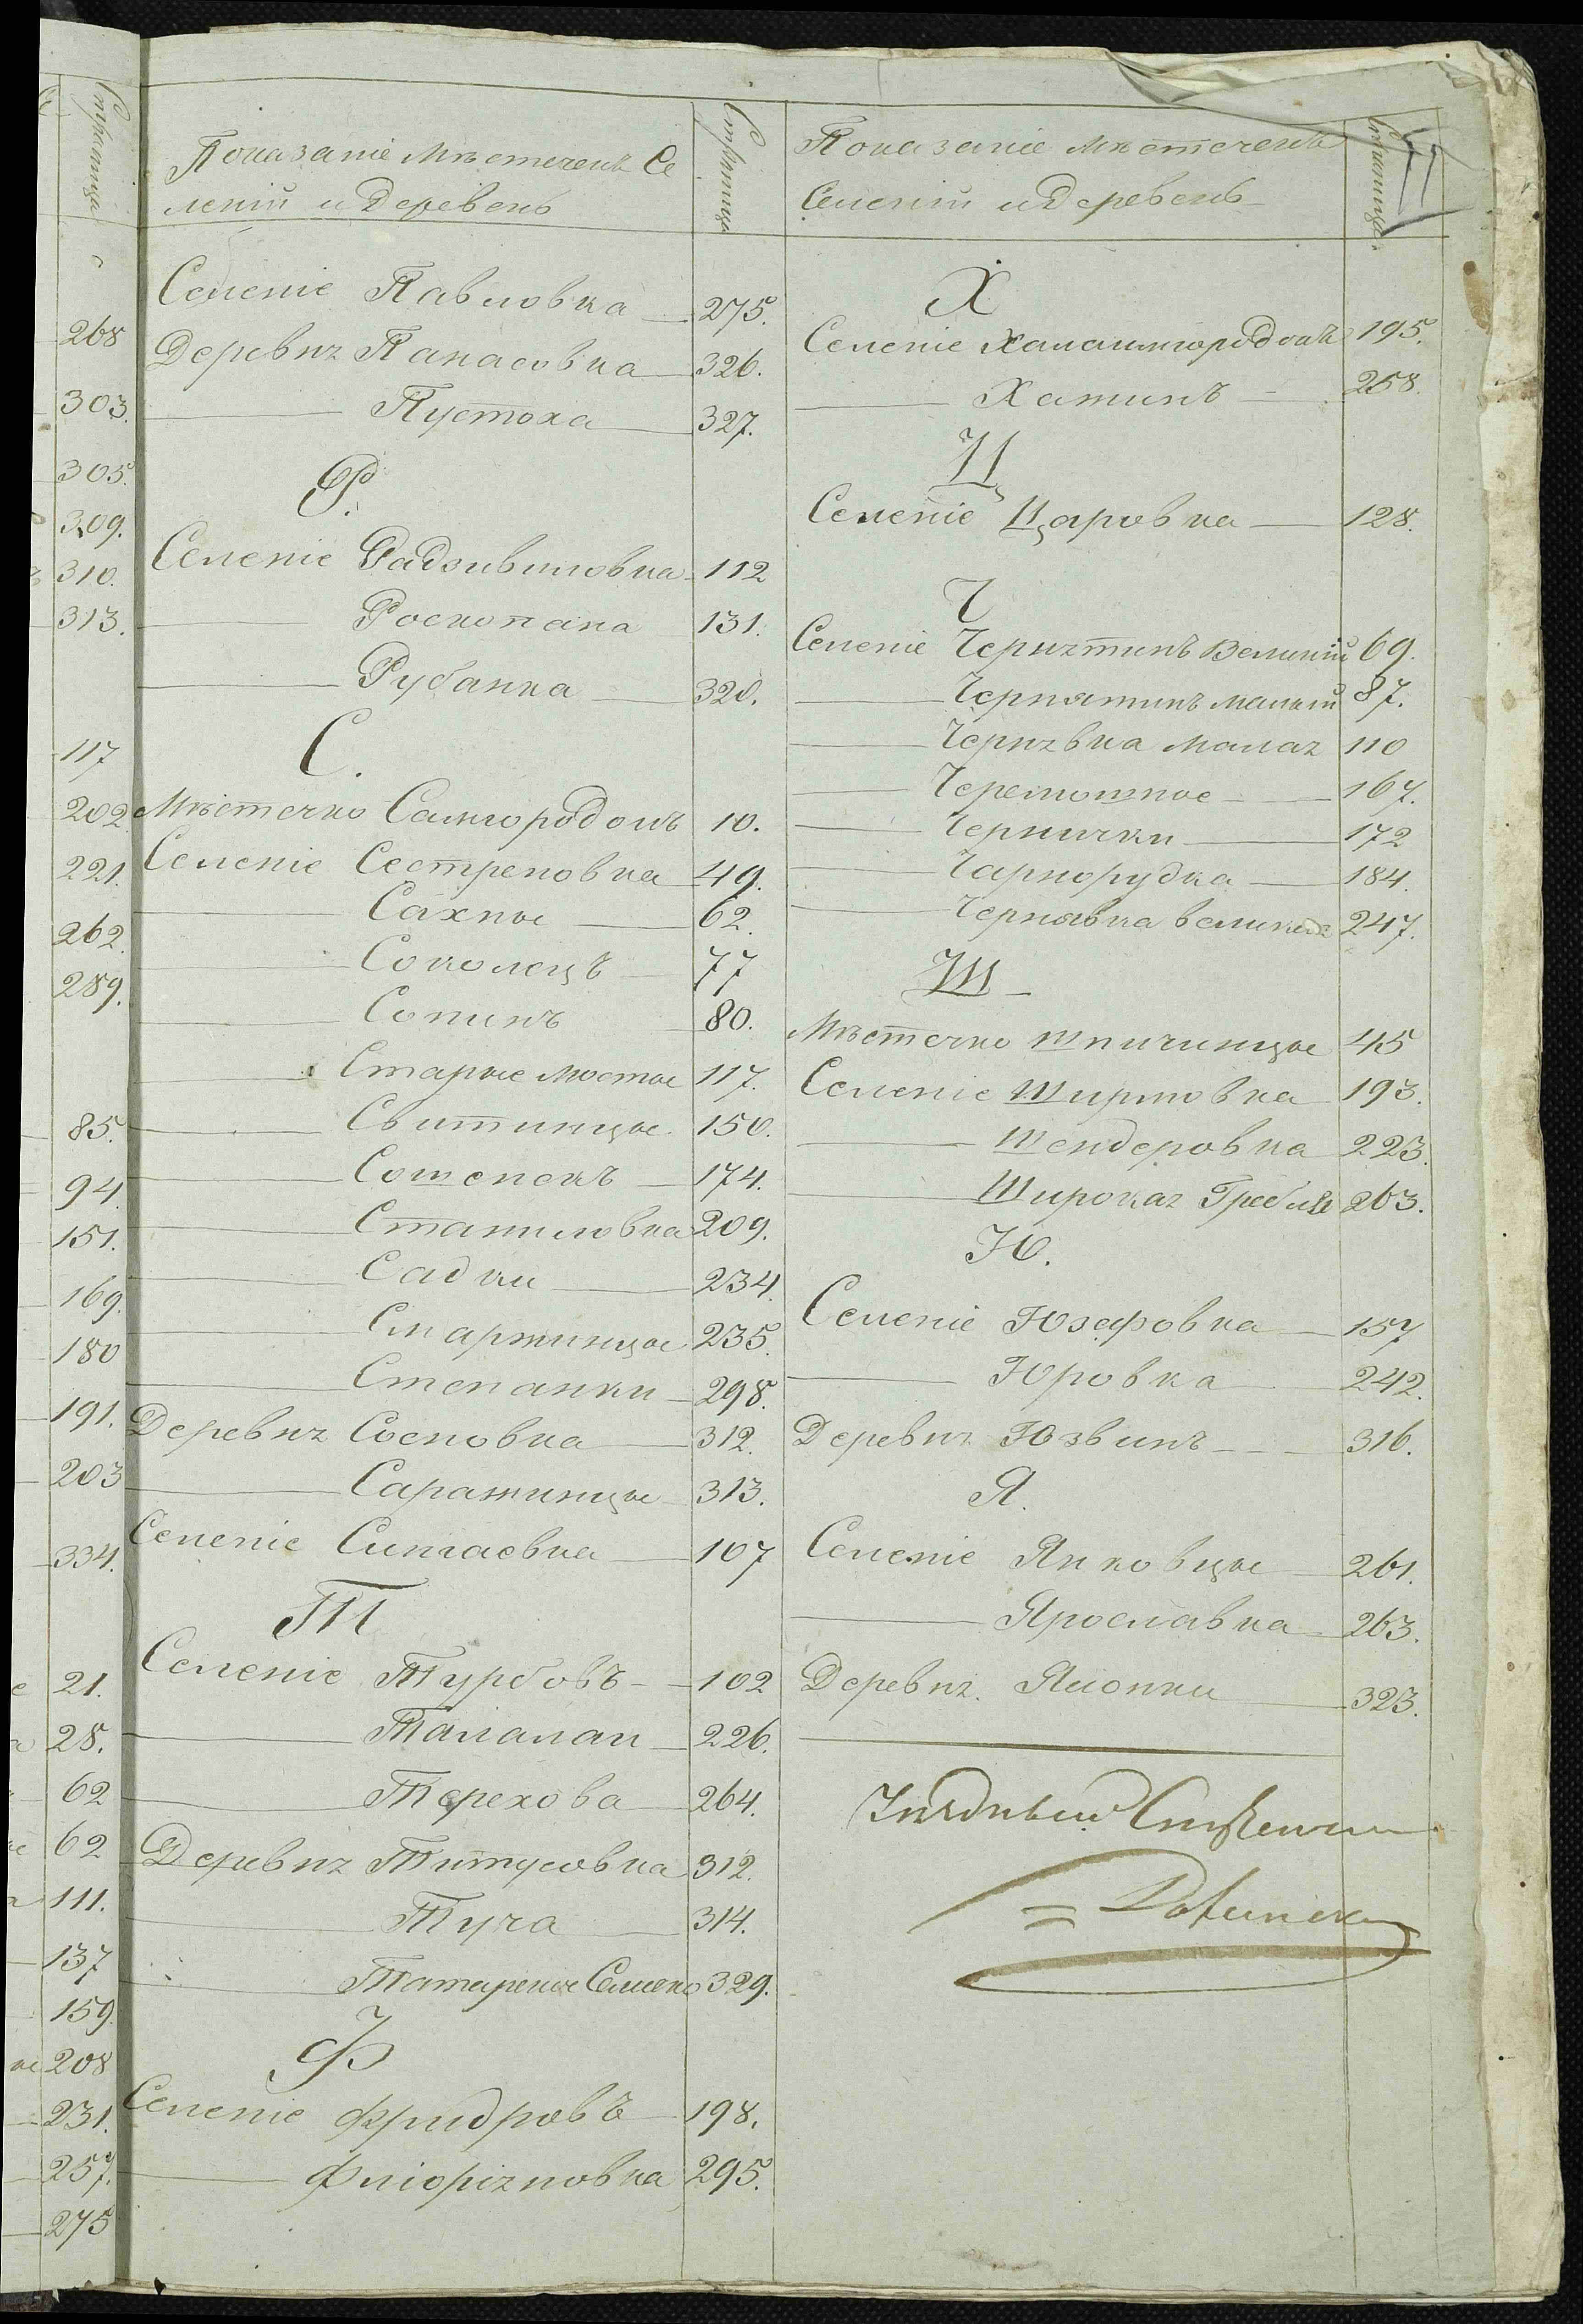 Страница
268
303.
305.
309.
310.
313.
117
202.
221.
262.
289.
85.
94.
151.
169.
180
191.
203
334.
21.
28.
62
62
111.
137
159
208
231.
257.
275
Показаніе Мѣстечекъ Се
леній и Деревень
Страница
Селеніе Павловка 275.
Деревня Панасовка 326.
Пустоха 327.
Р.
Селеніе Радзивиловка 112
Роскопана 131.
Рубанка 320.
С.
Мѣстечко Самгородокъ 10.
Селеніе Сестреновка 49.
Сахные 62.
Соколецъ 77
Сопинъ 80.
Старые Мосты 117.
Свитинцы 150.
Сошенскъ 174.
Станиловка 209.
Садки 234.
Смаржинцы 235.
Степанки 298.
Деревня Сосновка 312.
Саражинцы 313.
Селеніе Сингаевка 107
Т
Селеніе Турбовъ 102
Талалаи 226.
Терехова 264.
Деревня Титусовка 312.
Туча 314.
329.
Ф
Селеніе Фридровъ 198.
Флиоріяновка 295.
Показаніе Мѣстечекъ
Селеній и Деревень
Страница
Х
Селеніе Халаимгородокъ 195.
Хатинъ 258.
Ц
Селеніе Царовка 128.
Ч
Селеніе Чернятинъ Великій 69.
Чернятинъ малый 87.
Чернявка Малая 110
Черемошное 167.
Чернички 172
Чарнорудка 184.
Чернявка великая 247.
Ш
Мѣстечко Шпичинцы 45
Селеніе Ширмовка 193.
Шендеровка 223.
Широкая Гребля 263.
Ю.
Селеніе Юзефовка 157
Юровка 242.
Деревня Юзвинъ 316.
Я.
Селеніе Янковцы 261.
Ярославка 263.
Деревня Ясонки 323.